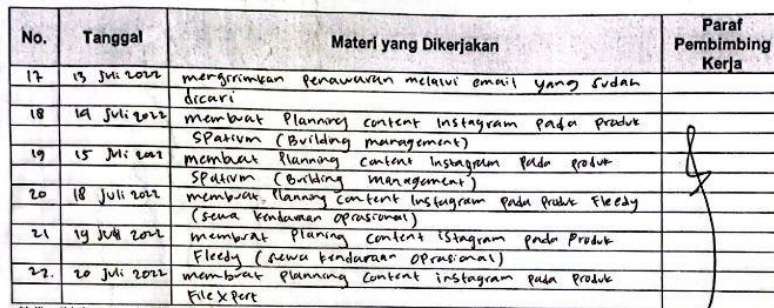 No. Tanggal Materi yang Dikerjakan Paraf Pembimbing Kerja
17 13 Juli 2022 mengirimkan penawaran melalui email yang sudah
dicari
18 14 Juli 2022 membuat Planning content Instagram pada produk
SPatium (Building management)
19 15 Juli 2022 membuat Planning content Instagram pada produk
SPatium (Building management)
20 18 Juli 2022 membuat Planning content Instagram pada produk Fleedy
(sewa kendaraan oprasional)
21 19 Juli 2022 membuat Planing content iStagram pada Produk
Fleedy (sewa kendaraan oprasional)
22. 20 Juli 2022 membuat Planning content instagram pada produk
File Xpert